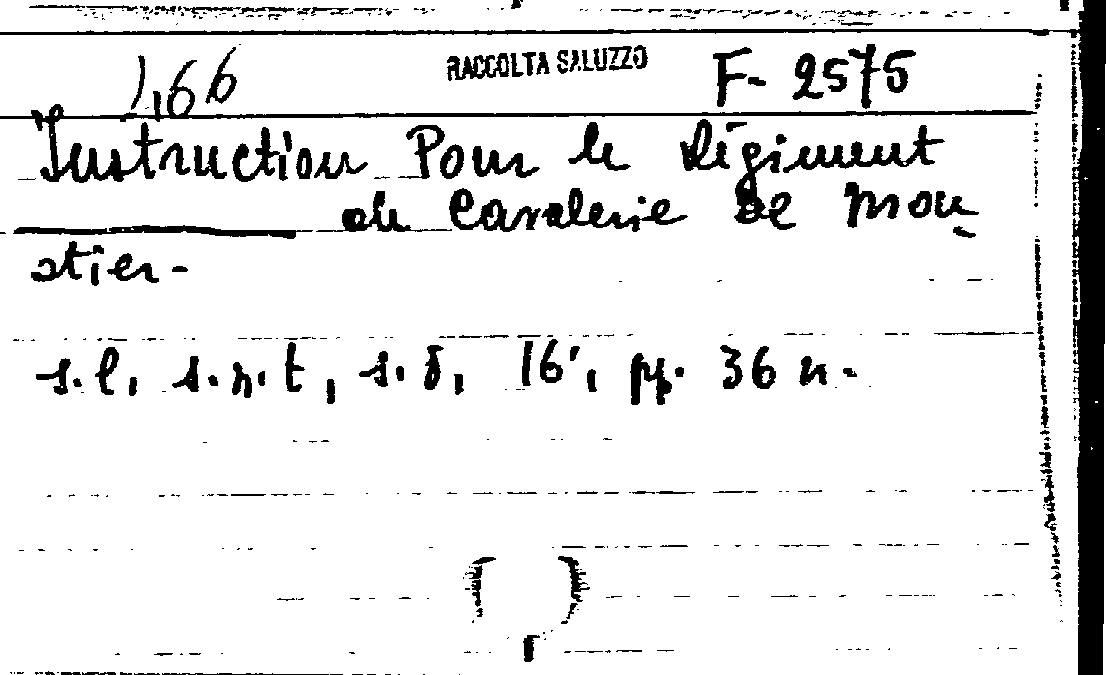 1,66 RACCOLTA SALUZZO F- 2575
Instruction Pour le Régiment
de Cavalerie de Mou_
stier-
s.l, s.n.t, s.d, 16°, pp. 36 n.